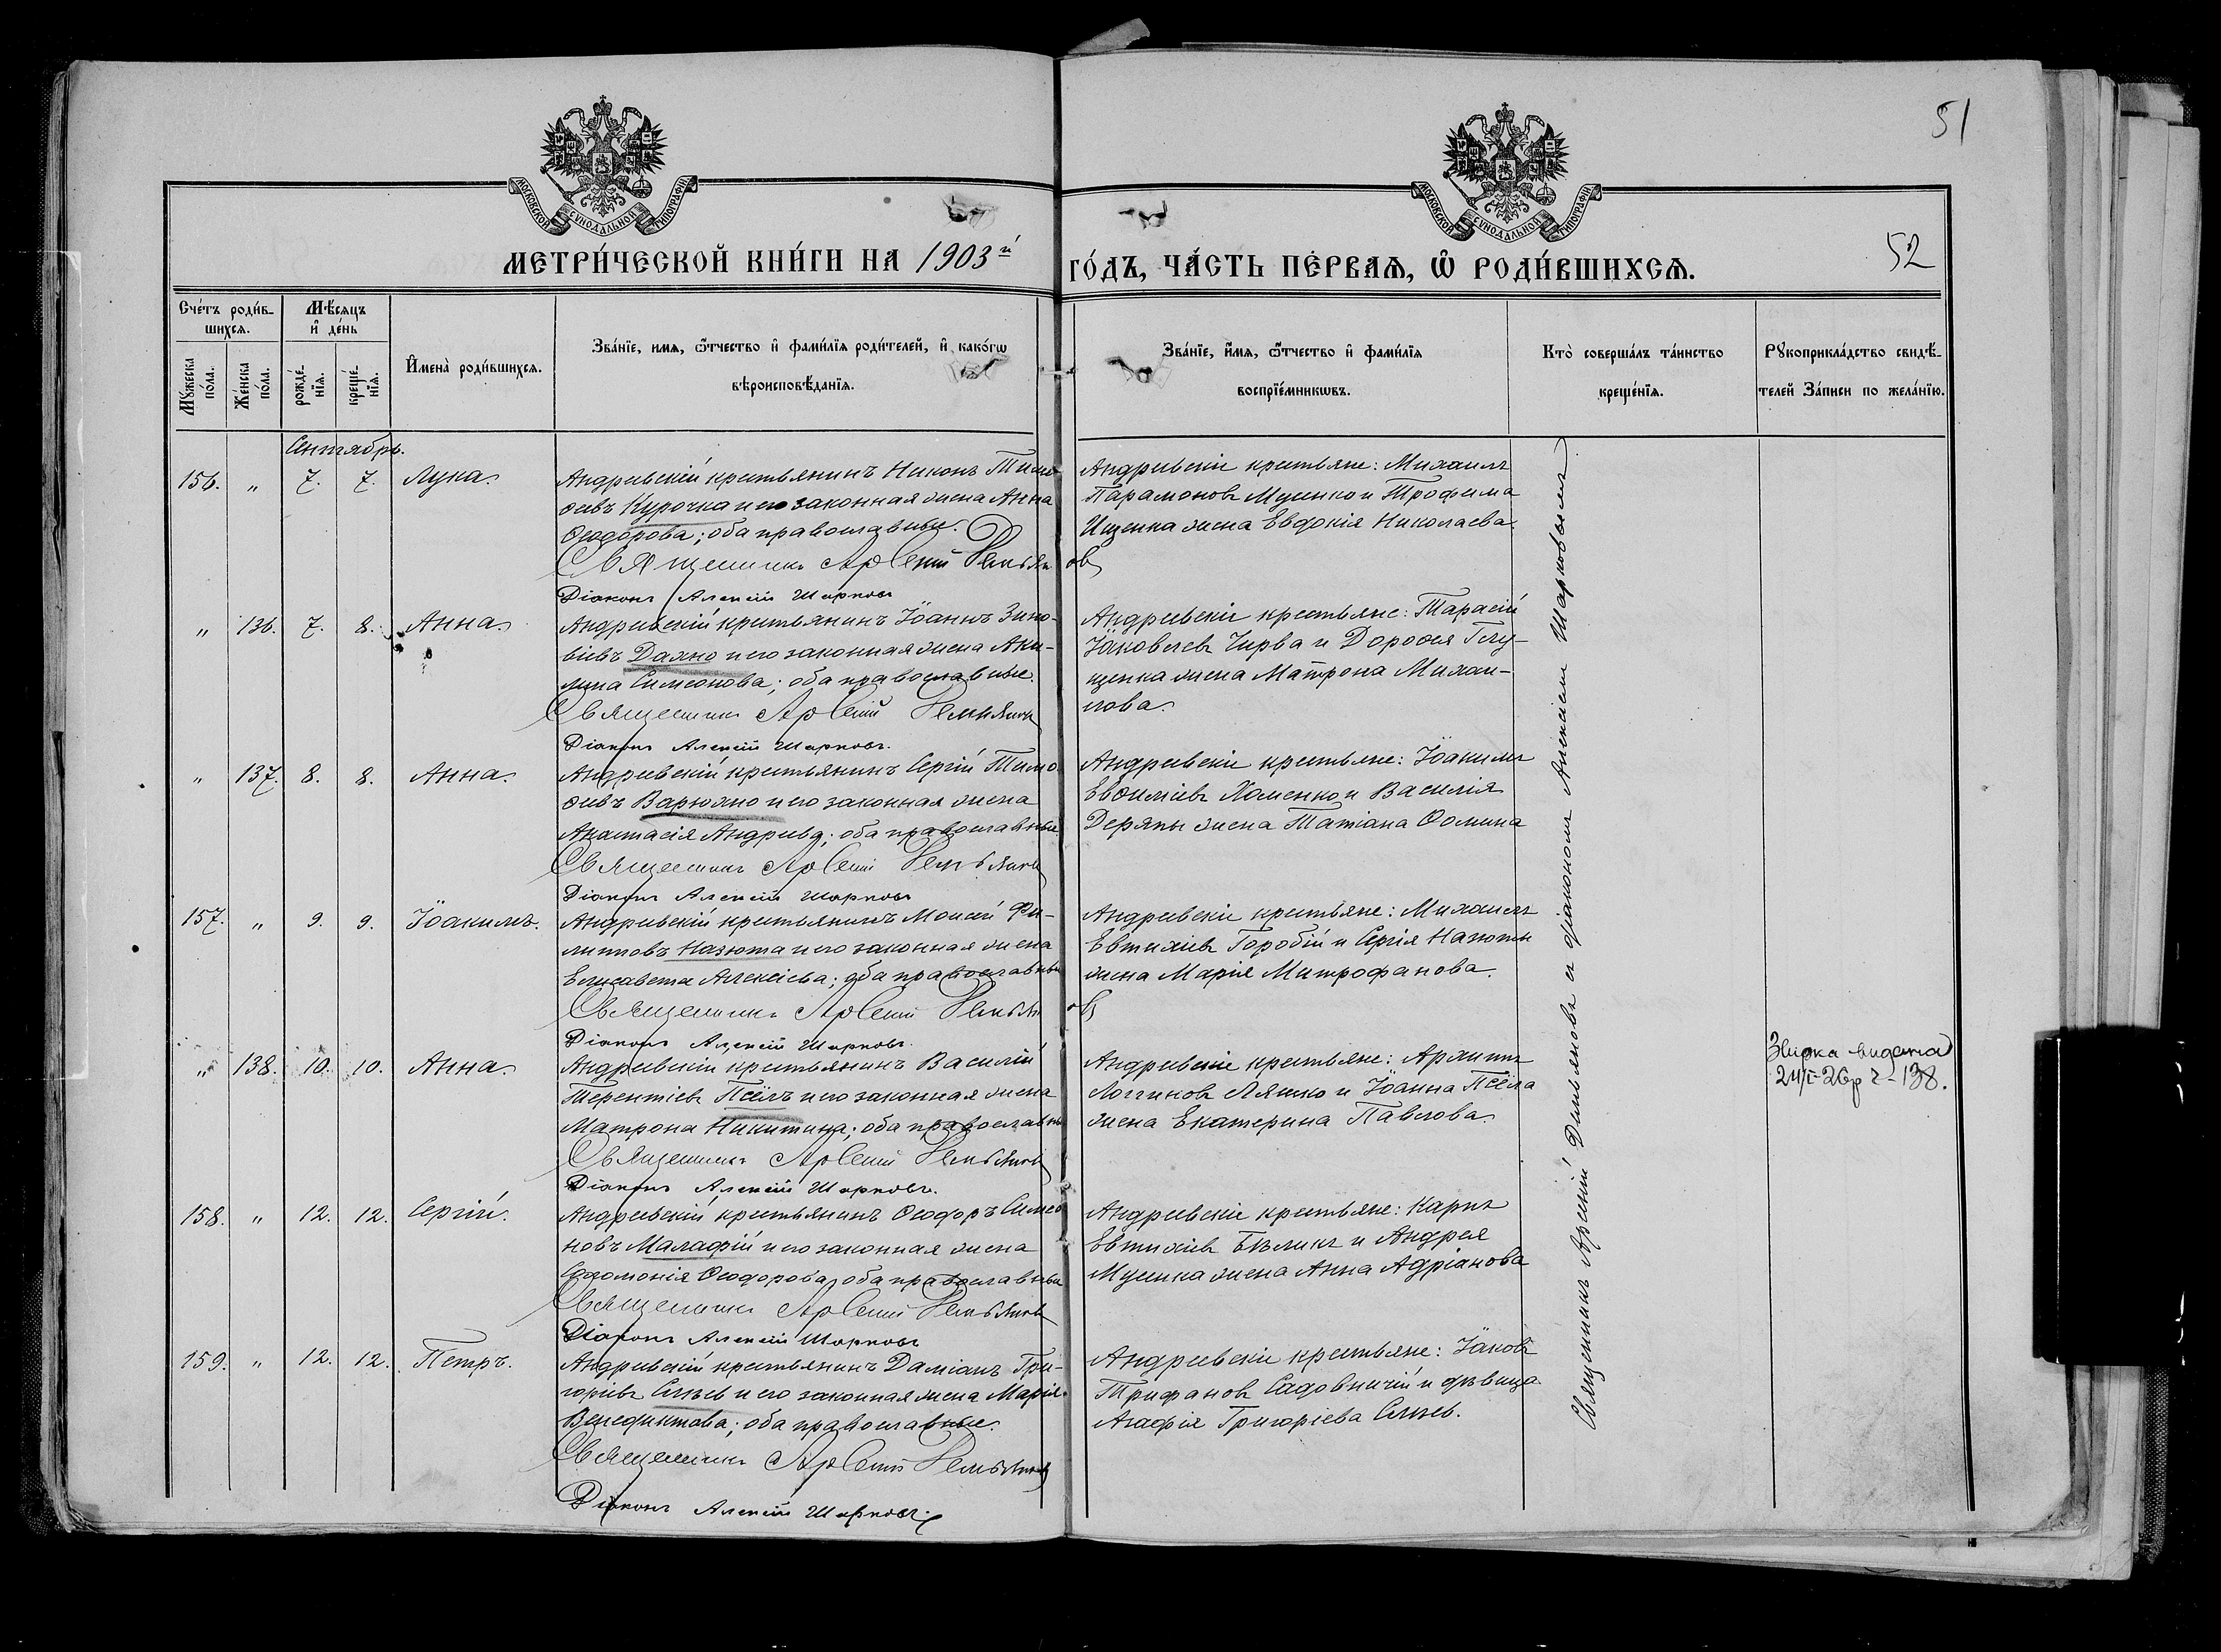 51
МОСКОВСКОЙ СѴНОДАЛЬНОЙ ТИПОГРАФІИ
МОСКОВСКОЙ СѴНОДАЛЬНОЙ ТИПОГРАФІИ
МЕТРИ́ЧЕСКОЙ КНИ́ГИ НА 1903й ГО́ДЪ, ЧА́СТЬ ПЕ́РВАѦ, Ѡ҆ РОДИ́ВШИХСѦ.
52
Сче́тъ роди́в-
шихсѧ.
Мѣ́сяцъ
и҆ де́нь
Мꙋ́жеска
по́ла.
Же́нска
по́ла.
рожде́-
нїѧ.
креще́-
нїѧ.
И҆мена̀ роди́вшихсѧ.
Зва́нїе, имѧ, ѻ҆́тчество и҆ фами́лїѧ роди́телей, и҆ како́гѡ
вѣроисповѣ́данїѧ.
Зва́нїе, и҆́мѧ, ѻ҆́тчество и҆ фами́лїѧ
воспрїе́мникѡвъ.
Кто̀ соверша́лъ та́инство
креще́нїѧ.
Рꙋкоприкла́дство свидѣ́-
телей за́писи по жела́нїю.
Сентябрь.
156. " 7. 7. Лука.
Андреевскій крестьянинъ Никонъ Тимо-
ѳеевъ Курочка и его законная жена Анна
Ѳеодорова; оба православные.
Священникъ Арсеній Демьянов
Діаконъ Алексій Шарковъ
Андреевскіе крестьяне: Михаилъ
Парамоновъ Мушенко и Трофима
Ищенка жена Евдокія Николаева
" 136. 7. 8. Анна.
Андреевскій крестьянинъ Іоаннъ Зино-
віевъ Даяно и его законная жена Аки-
лина Симеонова; оба православные.
Священникъ Арсеній Демьянов
Діаконъ Алексій Шарковъ.
Андреевскіе крестьяне: Тарасій
Іаковлевъ Чирва и Дороѳея Глу-
щенка жена Матрона Михаи-
лова.
" 137. 8. 8. Анна.
Андреевскій крестьянинъ Сергій Тимо-
ѳеевъ и его законная жена
Анастасія Андреева; оба православные
Священникъ Арсеній Демьянов
Діаконъ Алексій Шарковъ
Андреевскіе крестьяне: Іоакимъ
Евѳиміевъ Хоменко и Василія
Деряпы жена Татіана Ѳомина
157. " 9. 9. Іоакимъ.
Андреевскій крестьянинъ Моисей Фи-
липповъ Назюта и его законная жена
Елисавета Алексіева; оба православные
Священникъ Арсеній Демьянов
Діаконъ Алексій Шарковъ.
Андреевскіе крестьяне: Михаилъ
Евтихіевъ Горобій и Сергія Назюты
жена Марія Митрофанова.
" 138. 10. 10. Анна.
Андреевскій крестьянинъ Василій
Терентіевъ Псёлъ и его законная жена
Матрона Никитина; оба православные
Священникъ Арсеній Демьянов
Діаконъ Алексій Шарковъ.
Андреевскіе крестьяне: Архипъ
Логгиновъ Ляшко и Іоанна Псёла
жена Екатерина Павлова.
видана
138.
158. " 12. 12. Сергій.
Андреевскій крестьянинъ Ѳеодоръ Симео-
новъ Малафій и его законная жена
Соломонія Ѳеодорова; оба православные
Священникъ Арсеній Демьянов
Діаконъ Алексій Шарковъ
Андреевскіе крестьяне: Карпъ
Евтихіевъ Бѣликъ и Андрея
Мушенка жена Анна Адріанова
159. " 12. 12. Петръ.
Андреевскій крестьянинъ Даміанъ Гри-
горіевъ и его законная жена Марія
Венедиктова; оба православные.
Священникъ Арсеній Демьянов
Діаконъ Алексій Шарковъ.
Андреевскіе крестьяне: Іаковъ
Трифановъ Садовничій и дѣвица
Агафія Григоріева
Священникъ Арсеній Демьяновъ съ діакономъ Алексіемъ Шарковымъ